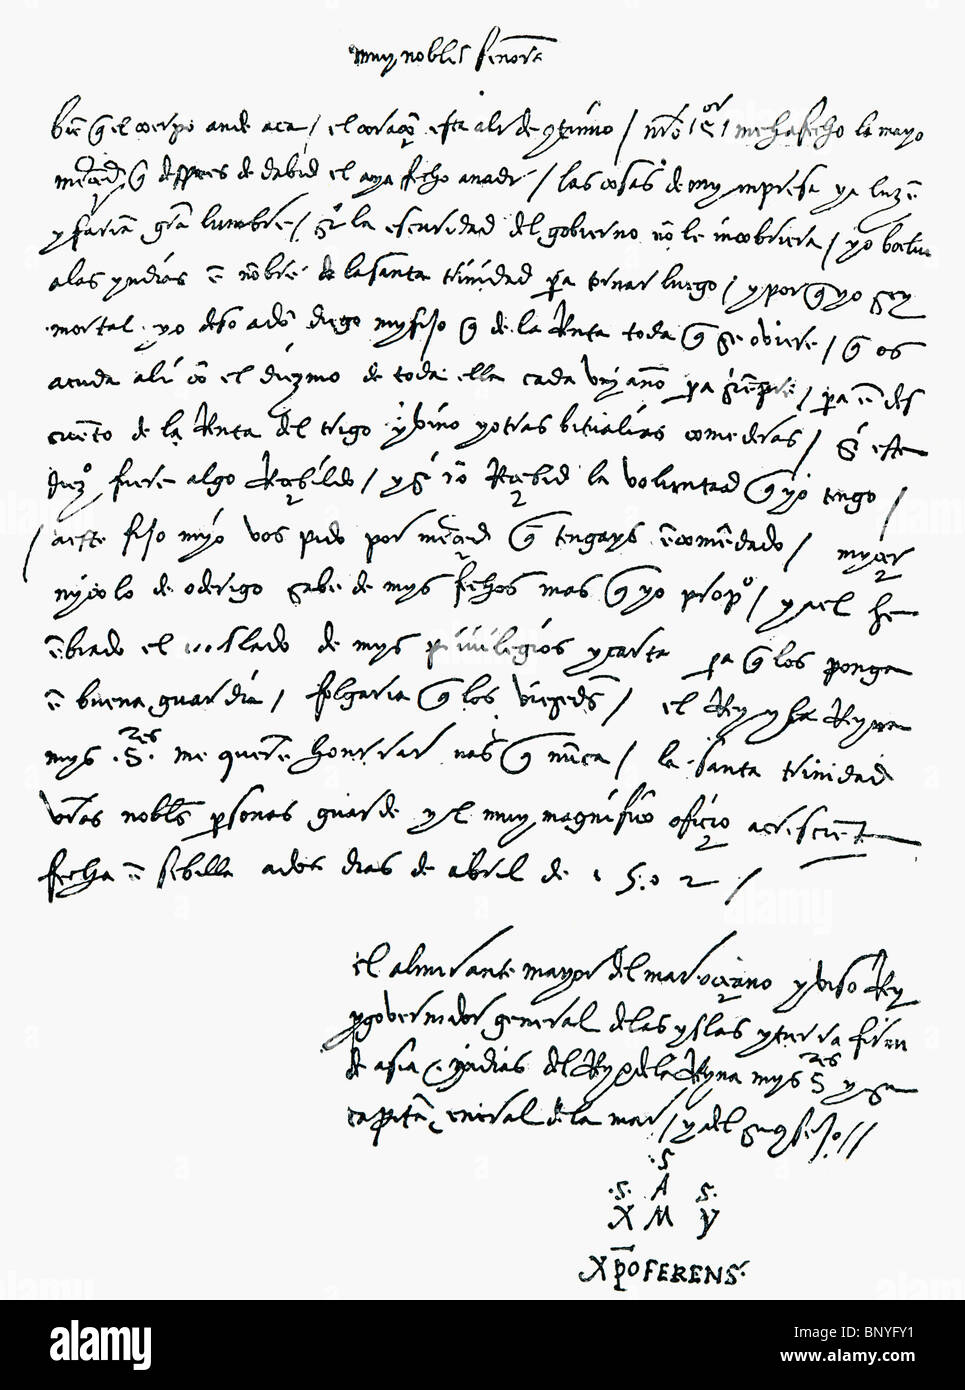 muy nobles señores
bie͂ q̃ el coerpo ande aca / el coraço͂ esta ali de co͂tinuo / nr̃o Sor me ha fecho la mayo
merçed q̃ despues de dabid el aya fecho a nadi / las cosas de my impresa ya luze͂
y faria͂ gra͂ lumbre / si la escuridad del gobierno no͂ le incobriera / yo botlu
a las yndias e͂ no͂bre de la santa trinidad pa tornar luego / y por q̃ yo sey
mortal yo dexo a do͂ diego my fijo q̃ de la Renta toda q̃ se oviere / q̃ os
acuda ali co͂ el diezmo de toda ella cada un año pa sie͂pre / pa e͂ des
cue͂to de la Renta del trigo y bino y otras bitualias comederas / Si este
diezo fuere algo Recebildo / y Si no͂ Recebid la voluntad q̃ yo tengo /
/ a este fijo myo vos pido por merçed q̃ tengays e͂come͂dado / myçer
nycolo de oderigo sabe de mys fechos mas q̃ yo propo / y a el he
e͂biado el traslado de mys privilegios y carta pa q̃ los ponga
e͂ buena guardia / folgaria q̃ los viesedes / el Rey y la Reyna
mys .S.res me quere͂ honrrar mas q̃ nu͂ca / la santa trinidad
vr̃as nobles personas guarde y el muy magnifico ofiçio acresciente
fecha e͂ sebilla a dos dias de abril de 1502 /
el almirante mayor del mar oçeano y viso Rey
y governador general de las yslas y tierra firme
de asia e yndias del Rey e de la Reyna mys S.res y su
capita͂ general de la mar / y del su co͂sejo //
.S.
.S. A S.
X M Y
Xp͂oFERENS.
alamy
Image ID: BNYFY1
www.alamy.com